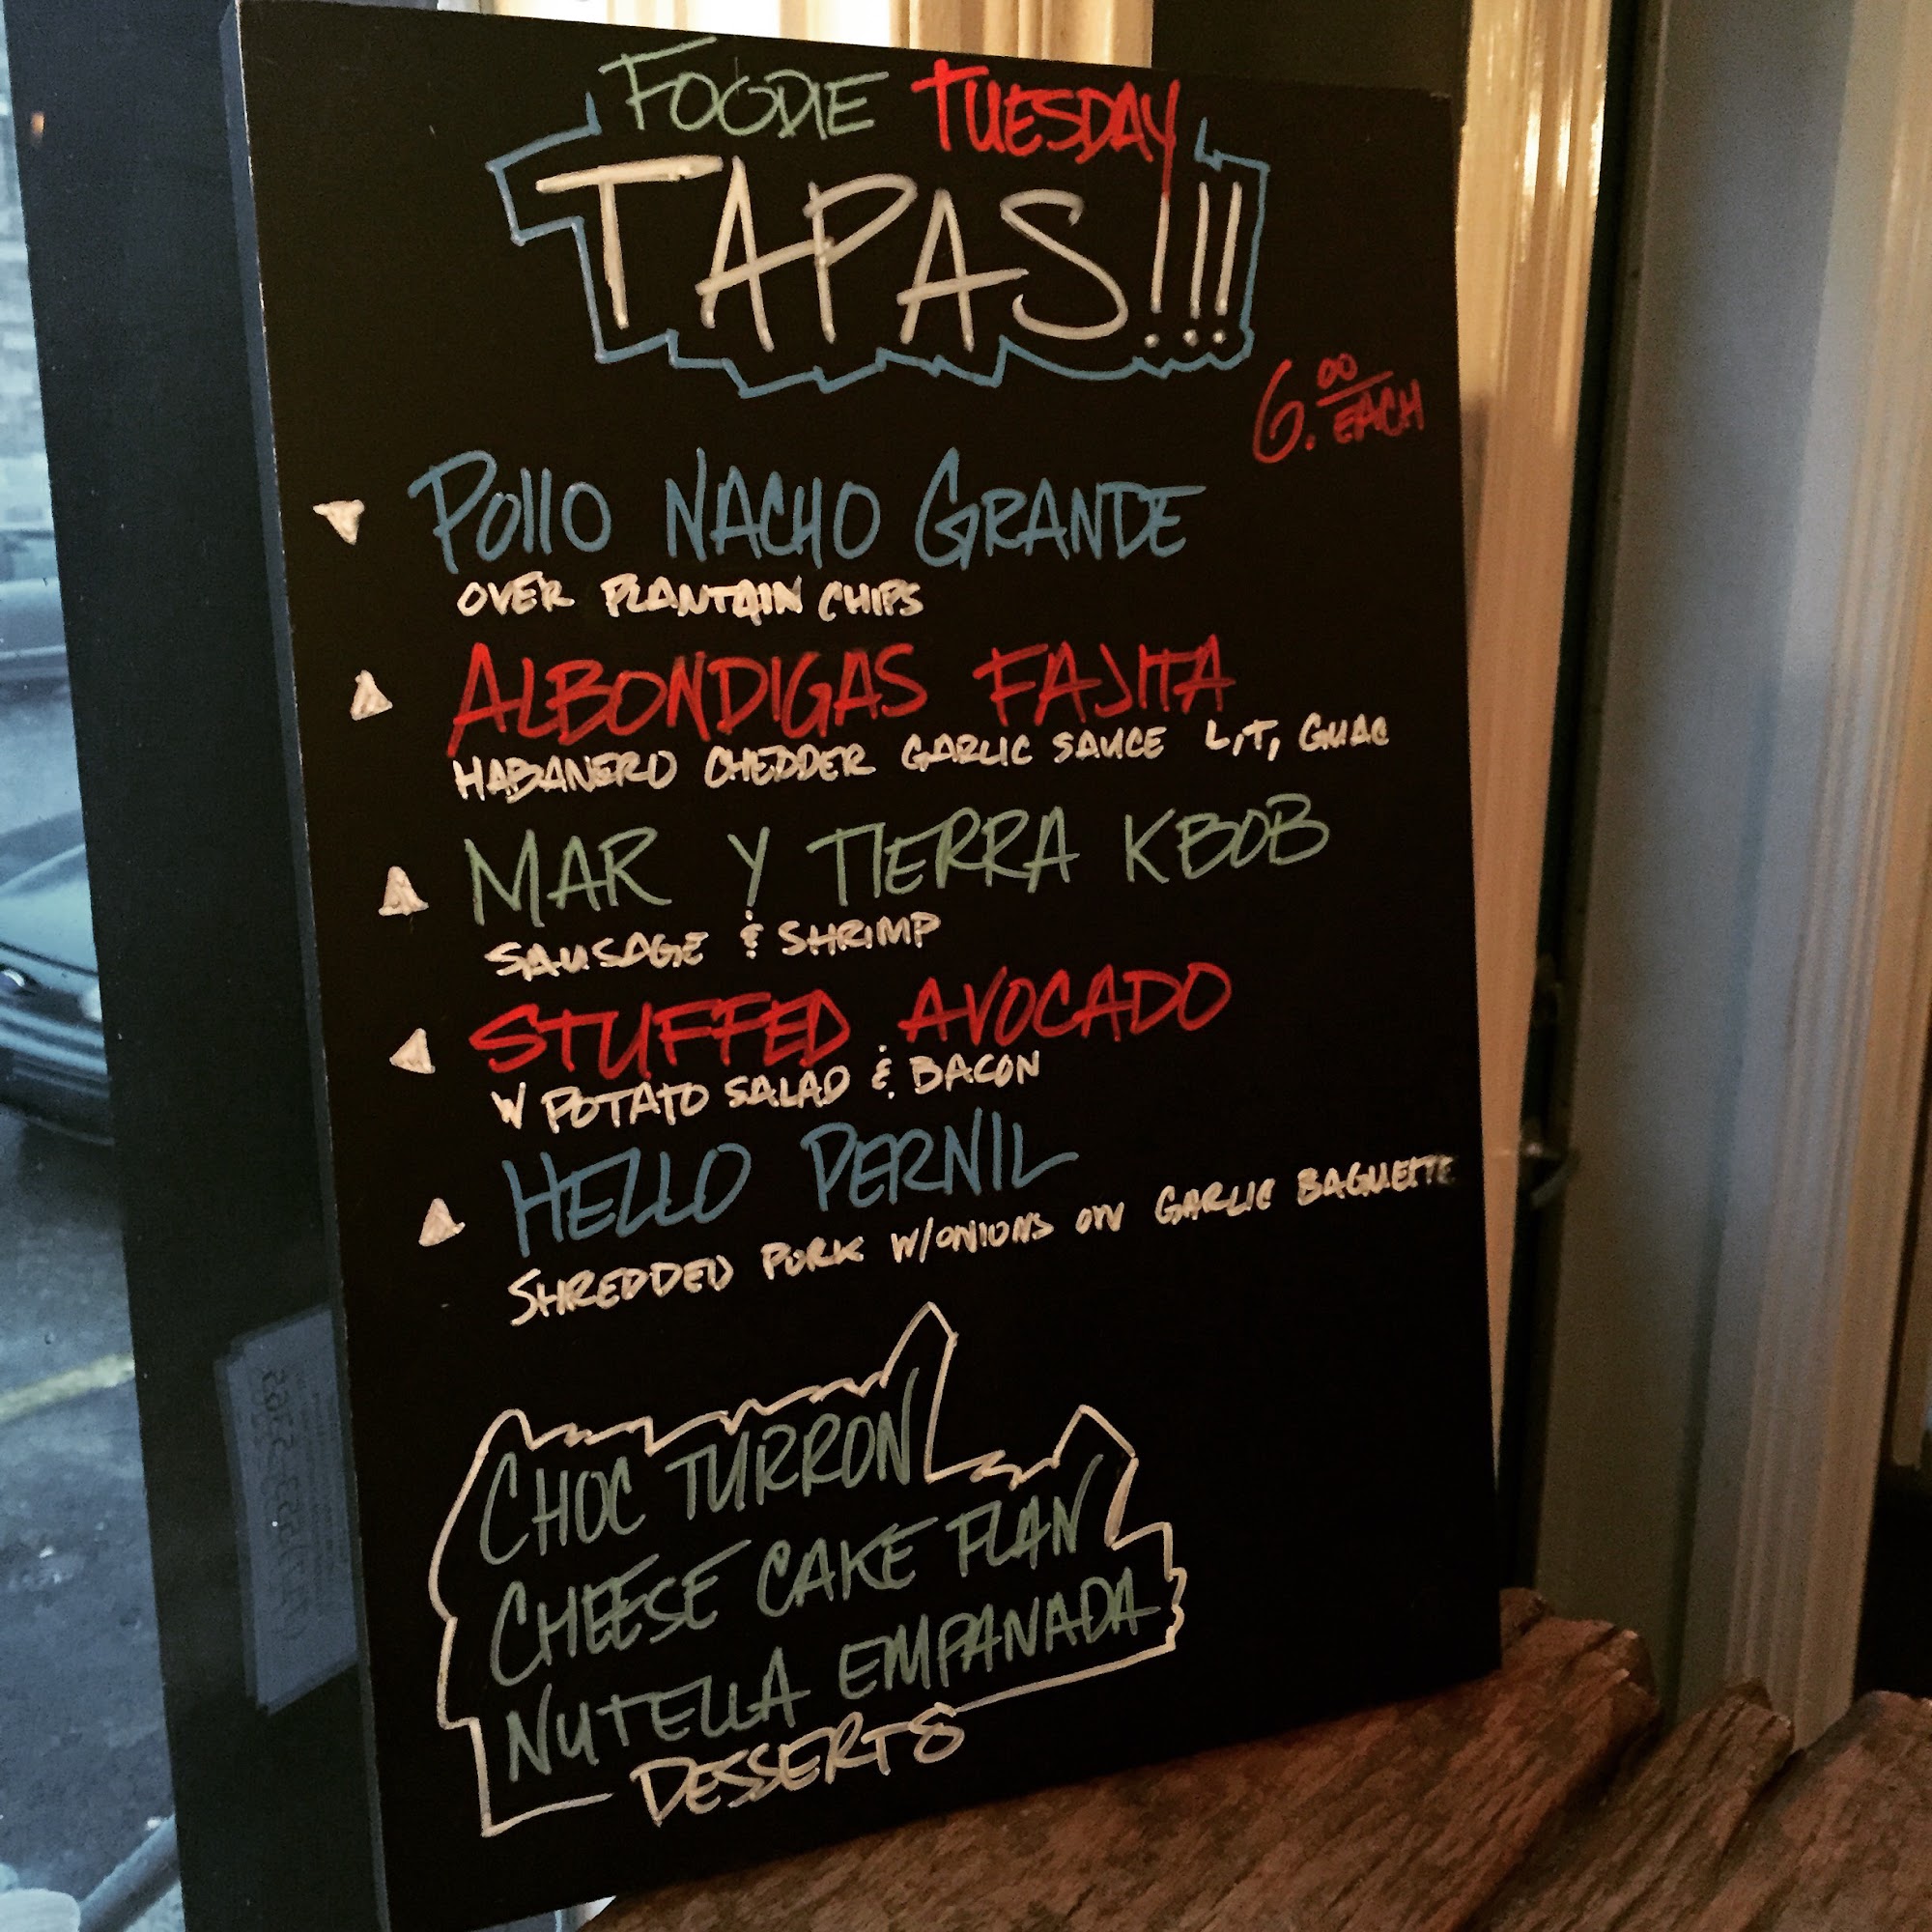 FOODIE TUESDAY
TAPAS!!!
6.00 EACH
POllO NACHO GRANDE
OVER PLANTAIN CHIPS
ALBONDIGAS FAJITA
HABANERO CHEDDER GARLIC SAUCE L,T, GUAC
MAR Y TIERRA KBOB
SAUSAGE & SHRIMP
STUFFED AVOCADO
W POTATO SALAD & BACON
HELLO PERNIL
SHREDDED PORK W/ONIONS ON GARLIC BAGUETTE
CHOC TURRON
CHEESE CAKE FLAN
NUTELLA EMPANADA
DESSERTS